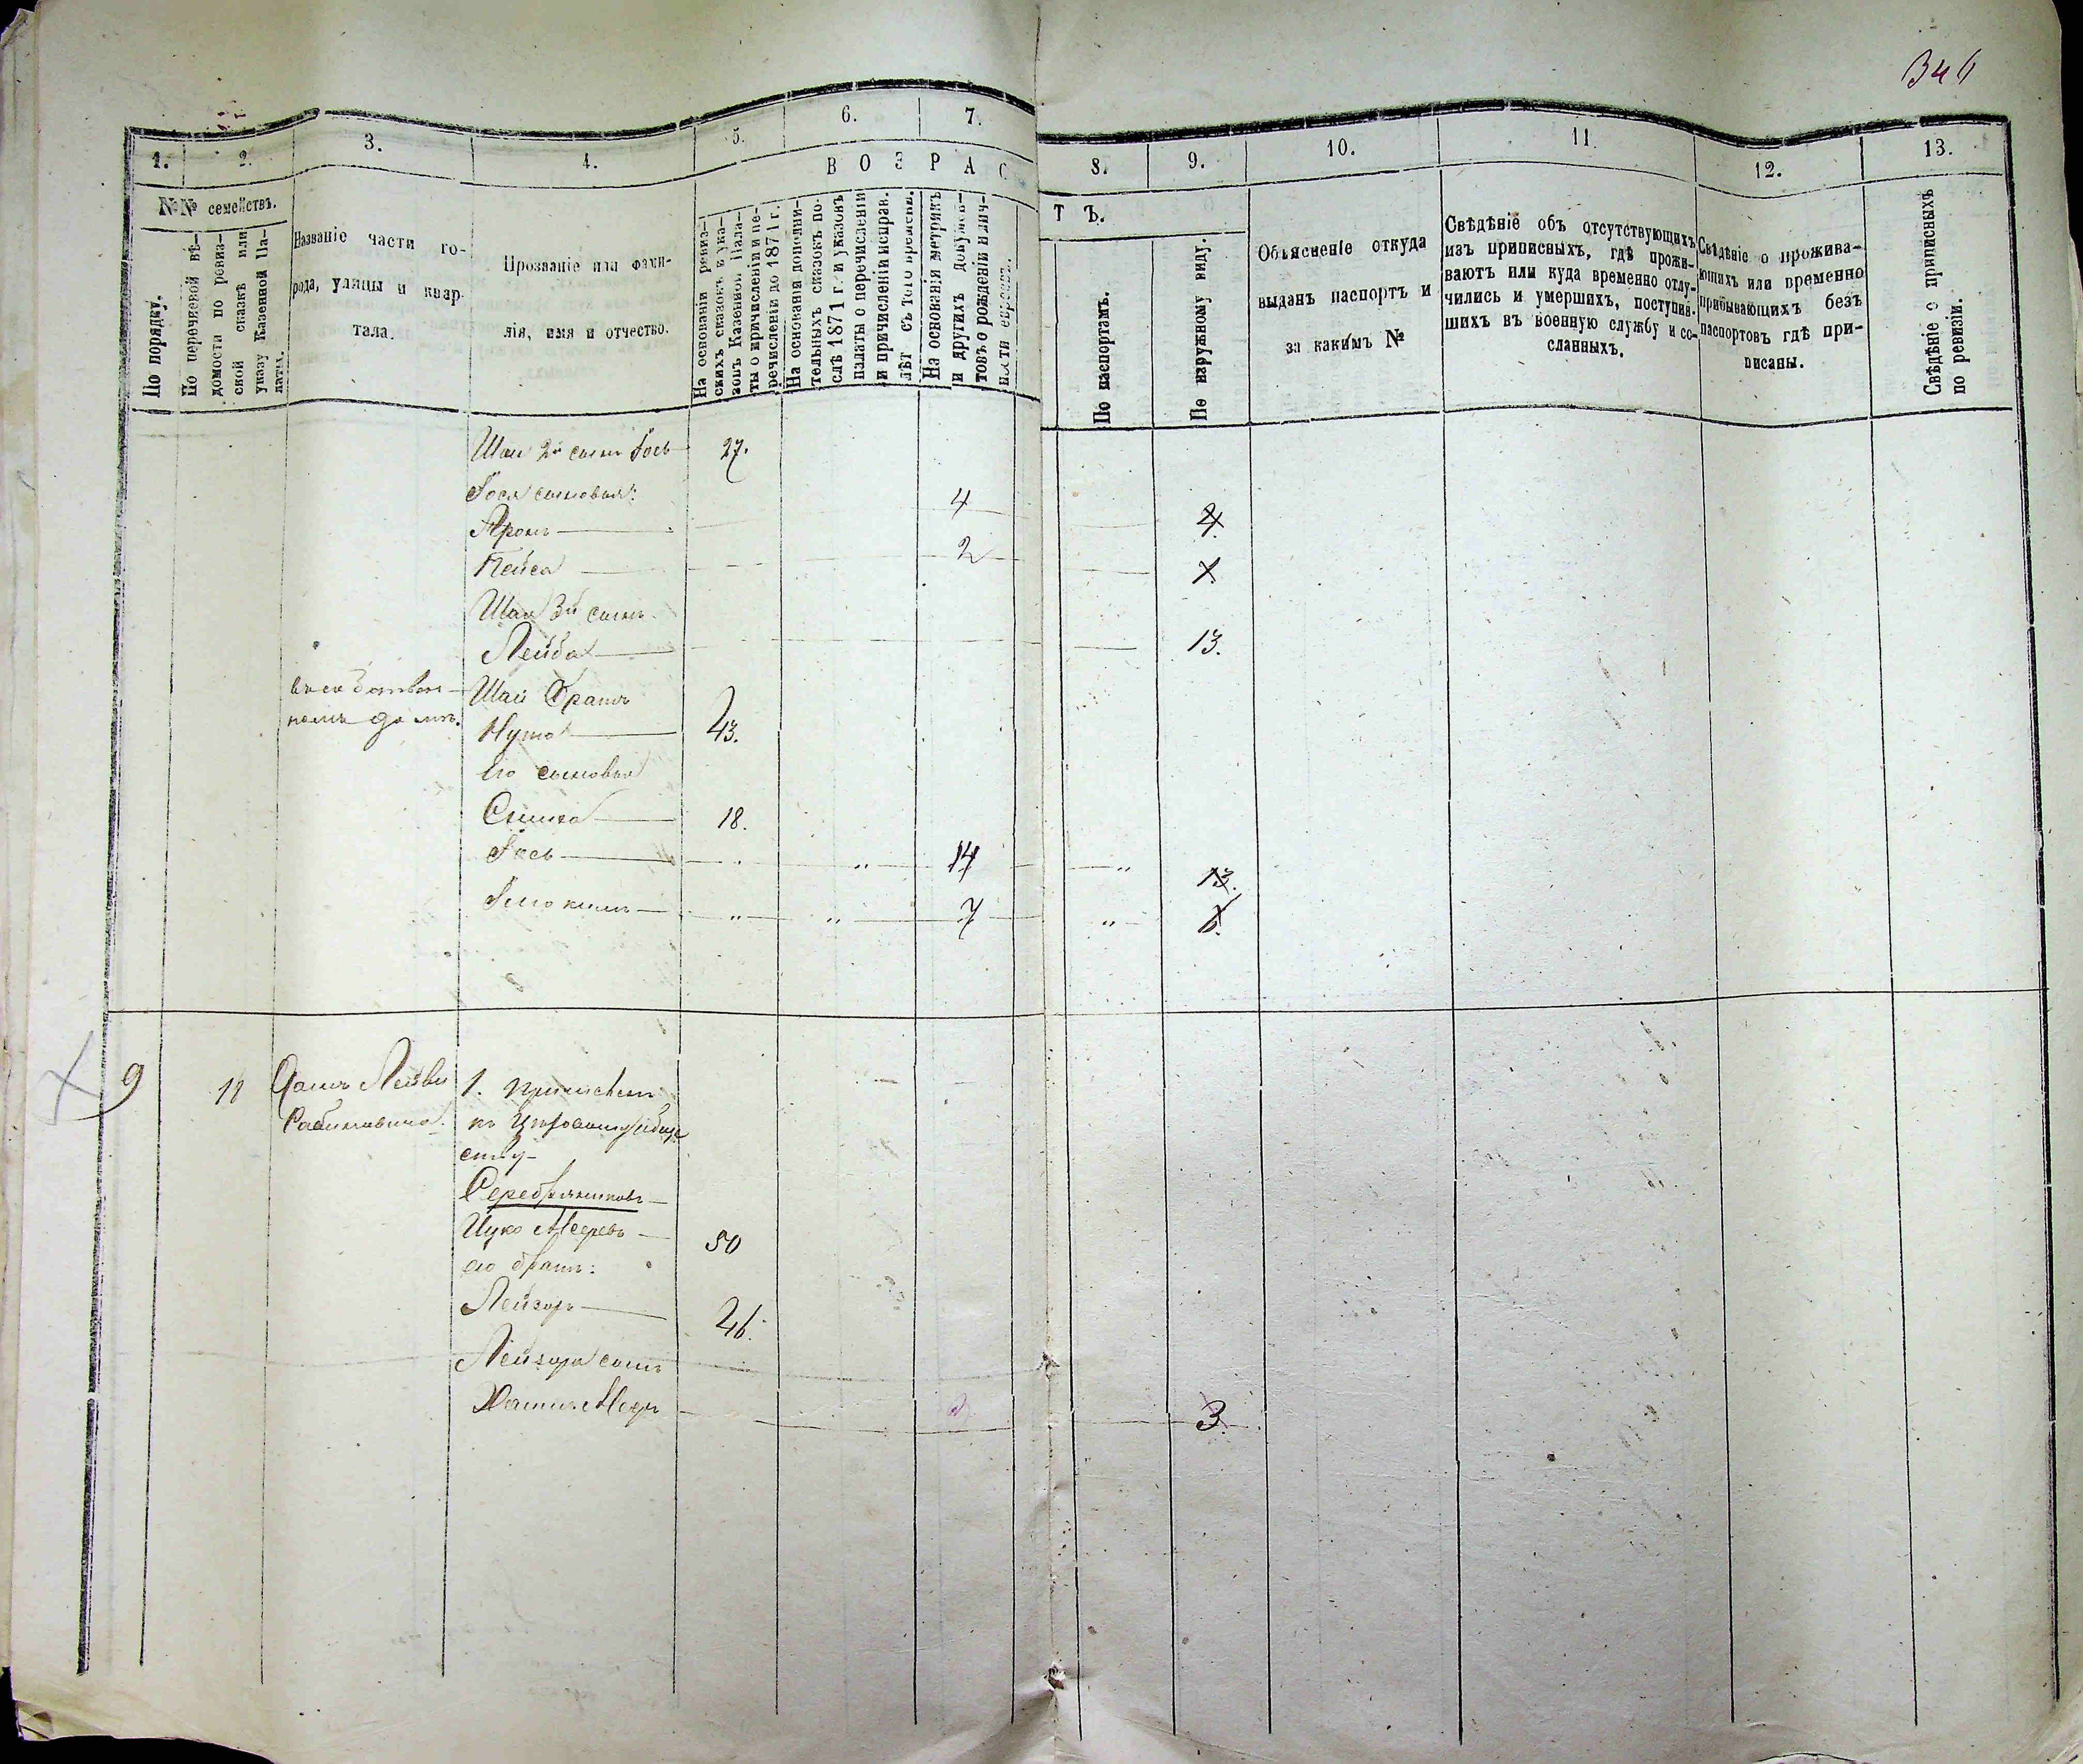 346
1. 2. 3. 4. 5. 6. 7. 8. 9. 10. 11. 12. 13.
ВОЗРАС
ТЪ.
№№ семействъ.
По порядку.
По перечневой вѣ-
домости по ревиз-
ской сказкѣ или
указу Казенной Па-
латы.
Названіе части го-
рода, улицы и квар-
тала.
Прозваніе или фами-
лія, имя и отчество.
На основаніи ревиз-
скихъ сказокъ и ука-
зовъ Казенной Пала-
ты о причисленіи и пе-
речисленіи до 1871 г.
На основаніи дополни-
тельныхъ сказокъ по-
слѣ 1871 г. и указовъ
палаты о перечисленіи
и причисленіи исправ.
лѣт съ того времени.
На основаніи метрикъ
и другихъ докумен-
товъ о рожденіи и лич-
ности евреевъ.
По паспортамъ.
По наружному виду.
Объясненіе откуда
выданъ паспортъ и
за какимъ №
Свѣдѣніе объ отсутствующихъ
изъ приписныхъ, гдѣ прожи-
ваютъ или куда временно отлу-
чились и умершихъ, поступив-
шихъ въ военную службу и со-
сланныхъ.
Свѣдѣніе о прожива-
ющихъ или временно
прибывающихъ безъ
паспортовъ гдѣ при-
писаны.
Свѣдѣніе о приписныхъ
по ревизіи.
Шаи 2й сынъ Іось 27.
Іося сыновья:
Аронъ 4 4.
Пейса 2 1.
Шаи 3й сынъ
Лейба 13.
въ собствен-
номъ домѣ.
Шаи братъ
Нута 43.
Его сыновья
Симха 18.
Іось " " 14 " 13.
" " 7 " 6.
9 11 Домъ Лейви
Рабиновича.
1. Приписанъ
къ обще
ству
Серебрянниковъ
Ицко Мееровъ 50
его братъ:
Лейзоръ 26.
Лейзора сынъ
Мееръ 2 3.